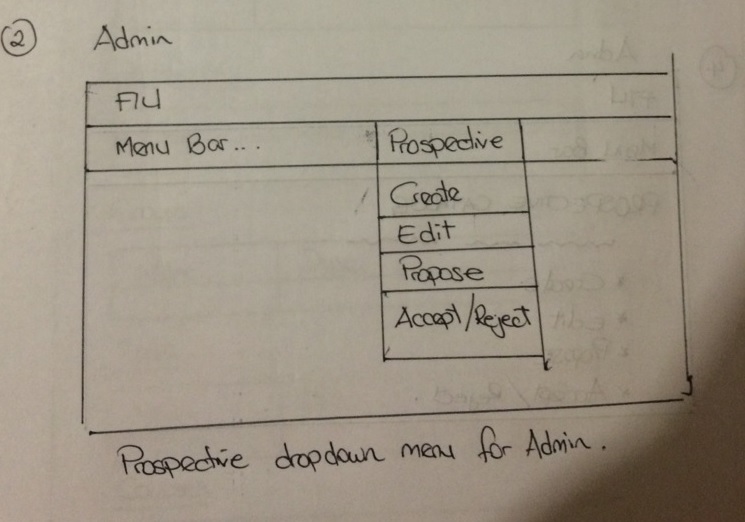 ② Admin
FIU
Menu Bar... Prospective
Create
Edit
Propose
Accept/Reject
Prospective dropdown menu for Admin.